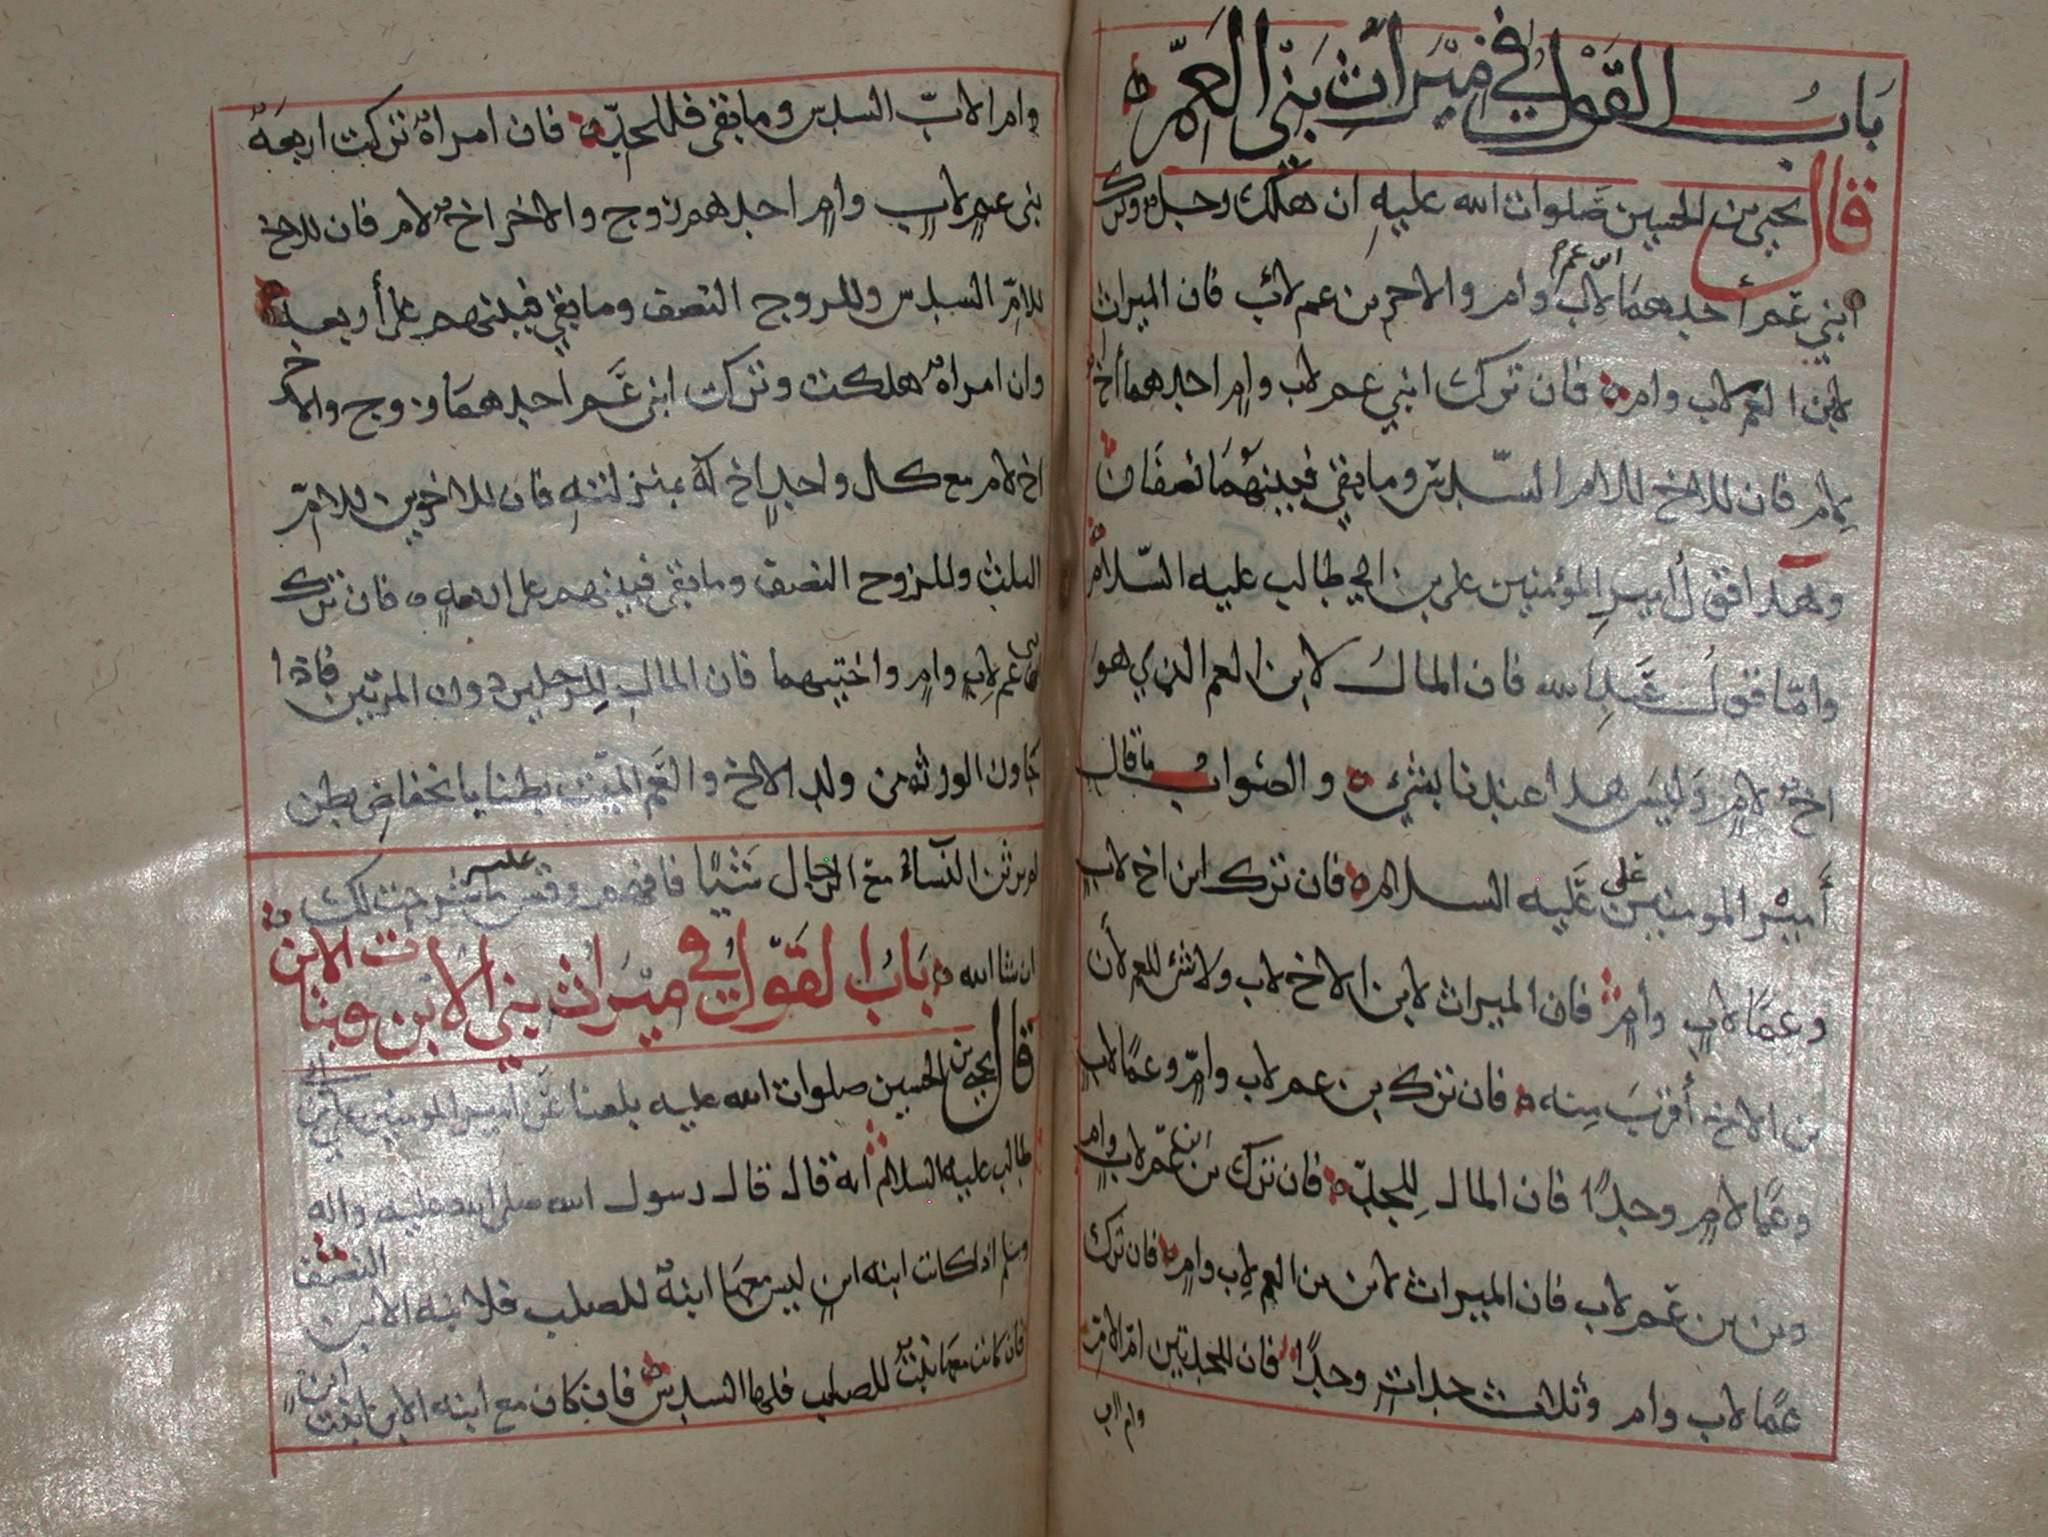 باب القول في ميراث بني العم
قال يحيى بن الحسين صلوات الله عليه ان هلك رجل وترك
ابني عم أحدهما ابن عم لأب وام والاخر بن عم لأب فان الميراث
لابن العم لاب وام فان ترك ابني عم لاب وام احدهما أخ
لام فان للاخ للام السدس وما بقي فبينهما نصفان
وهذا قول أمير المؤمنين علي بن ابي طالب عليه السلام
وامّا قول عبد الله فان المال لابن العم الذي هو
اخ لام وليس هذا عندنا بشيء والصواب ما قال
أمير المومنين علي عليه السلام فان ترك ابن اخ لاب
وعمّا لاب وأم فان الميراث لابن الاخ لاب ولا شئ للعم لأن
بن الاخ أقرب منه فان ترك بن عم لاب وام وعمًا لاب
وعمّا لام وجدًا فان المال للجد فان ترك بن ابن عم لاب وام
وبن بن عم لاب فان الميراث لابن بن العم لاب وام فان ترك
عمًا لاب وام وثلاث جدات وجدًا فان للجدتين ام الام
وام الاب
وام الاب السدس وما بقي فللجد فان امراة تركت اربعة
بني عم لاب وام احدهم زوج والاخر اخ لام فان للاخ
للام السدس وللزوج النصف وما بقي فبينهم على أربعة
وان امراة هلكت وتركت ابني عم احدهما زوج والاخر
اخ لام مع كل واحد اخ له بمنزلته فان للاخوين للام
الثلث وللزوج النصف وما بقي فبينهم على اربعة فان ترك
ابني عم لاب وام واختيهما فان المال للرجلين دون المرتين فاذا
جاوز الورثة من ولد الاخ والعم الميت بطنا بانخفاض بطن
لم يرثن النساء مع الرجال شيًا فافهم وقس عليه ما شرحت لك
ان شا الله باب القول في ميراث بني الابن وبنات الابن
قال يحيى بن الحسين صلوات الله عليه بلغنا عن امير المومنين علي بن ابي
طالب عليه السلام انه قال قال رسول الله صلى الله عليه واله
وسلم اذا كانت ابنه ابن ليس معها ابنة للصلب فلابنه الابن النصف
فان كانت معها بنت للصلب فلها السدس فان كان مع ابنه الابن ابن بنت